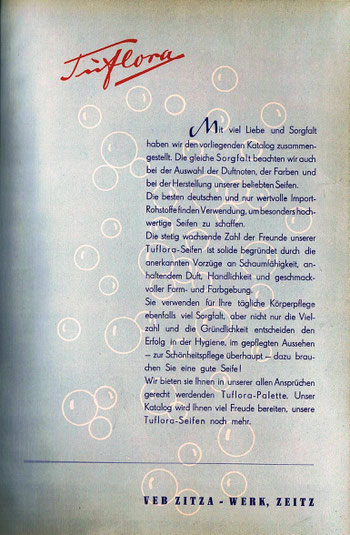 Tuflora
Mit viel Liebe und Sorgfalt
haben wir den vorliegenden Katalog zusammen-
gestellt. Die gleiche Sorgfalt beachten wir auch
bei der Auswahl der Duftnoten, der Farben und
bei der Herstellung unserer beliebten Seifen.
Die besten deutschen und nur wertvolle Import-
Rohstoffe finden Verwendung, um besonders hoch-
wertige Seifen zu schaffen.
Die stetig wachsende Zahl der Freunde unserer
Tuflora-Seifen ist solide begründet durch die
anerkannten Vorzüge an Schaumfähigkeit, an-
haltendem Duft, Handlichkeit und geschmack-
voller Form- und Farbgebung.
Sie verwenden für Ihre tägliche Körperpflege
ebenfalls viel Sorgfalt, aber nicht nur die Viel-
zahl und die Gründlichkeit entscheiden den
Erfolg in der Hygiene, im gepflegten Aussehen
– zur Schönheitspflege überhaupt – dazu brau-
chen Sie eine gute Seife!
Wir bieten sie Ihnen in unserer allen Ansprüchen
gerecht werdenden Tuflora-Palette. Unser
Katalog wird Ihnen viel Freude bereiten, unsere
Tuflora-Seifen noch mehr.
VEB ZITZA - WERK, ZEITZ